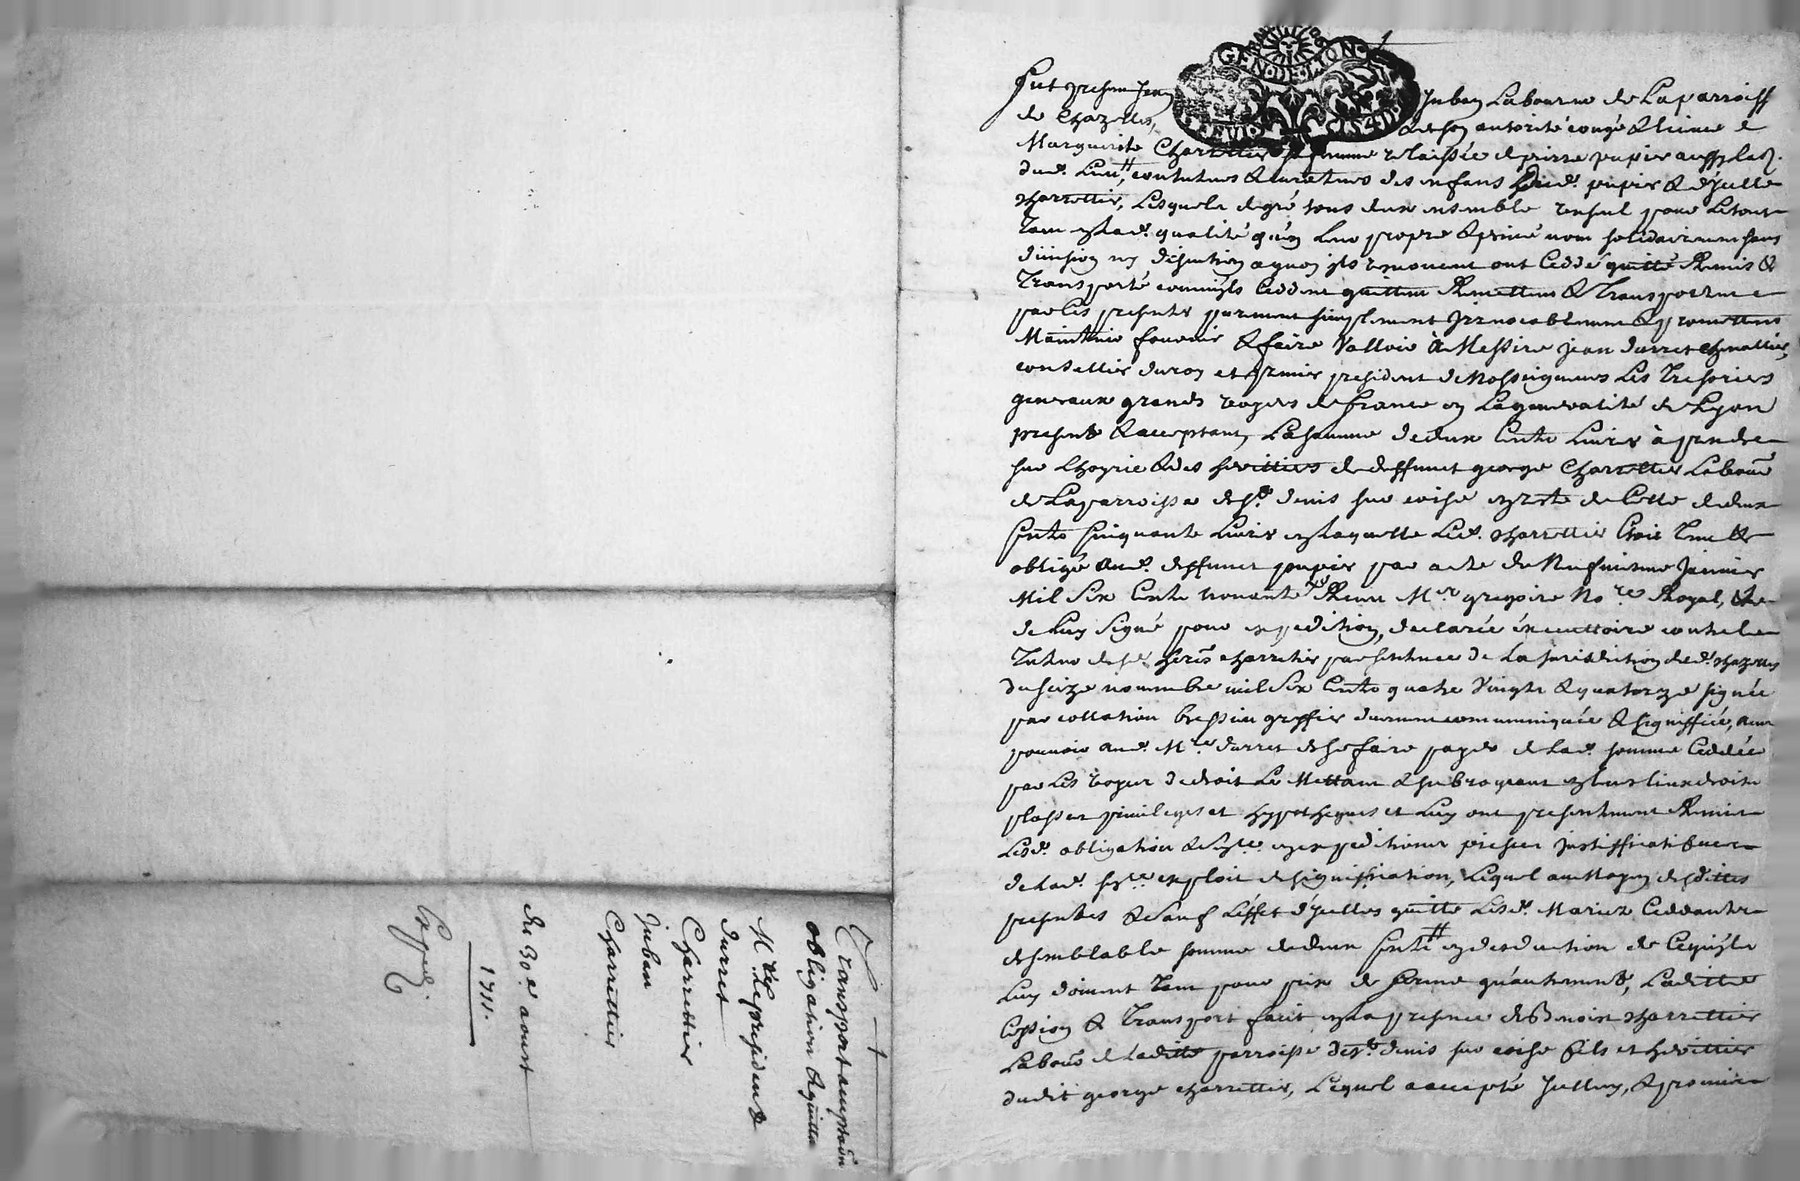 Transport
obligation & quitta
Mre le president
Durret
Charrettier
Juban
Charrettier
du 30e aoust
1711.
Expedi
GEN DE LYON
Fut present Jean Juban Laboureur de La parroisse
de Chazelles, & de son autorité congé & licence
Marguerite Charrettier sa femme relaissée de pierre pupier aussy Lab.
dud. Lieu, cy tuteurs & curateurs des enfans dud. pupier & d'ycelle
charrettier, Lesquels de gré tous deux ensemble & seul pour Le tout
Tant en Lad. qualité qu'en Leur propre & privé nom solidairement sans
division ny discution a quoy ils renoncent ont Ceddé quitté Remis &
Transporté comm'ils Ceddent quittent Remettent & Transportent
par Ces presentes purement simplement Irrevocablement & promettent
Maintenir fournir & faire Valloir à Messire jean durret chevallier,
conseiller du roy et premier president de Nosseigneurs Les Tresoriers
generaux grands voyers de france en La generalité de Lyon
present & acceptant, La somme de deux Cents Livres à prendre
sur L'hoyrie & des heritiers de deffunct george Charrettier Labour
de La parroisse de St. denis sur coise en reste de Celle de deux
Cents Cinquante Livres en Laquelle Led. charrettier s'etoit Tenu &
obligé aud. deffunct pupier par acte du Neufvieme Janvier
Mil Six Cents nonante Receu Mre gregoire Nore Royal, &
de Luy Signé pour expedition, declarée executtoire contre le
Tuteur desd. hers charretier par sentence de La jurisdiction dud. chazelles
du seize novembre mil Six Cents quatre Vingts & quatorze signée
par collation bressieu greffier duement communiquée & signiffiée, avec
pouvoir aud. Mre durret de se faire payer de Lad. somme Ceddée
par Les voyes de droit Le Mettant & subrogeant en Leurs lieux droits
places privileges et hypotheques et Luy ont presentement Remis
Lesd. obligation & Sce. en expeditions pieces justifficatives
de Lad. sce. exploit de signiffication, Lequel au Moyen desdittes
presentes & Sauf L'effet d'ycelles quitte Lesd. Mariez Ceddants
de semblable somme de deux Cents tt en deduction de Ce qu'ils
Luy doivent Tant pour prix de ferme qu'autrement, Laditte
Cession & Transport faict en La presence de Benoist charrettier
Labour de Laditte parroisse de St. denis sur coise fils et heritier
dudit george charrettier, Lequel a accepté Icelluy, & promis